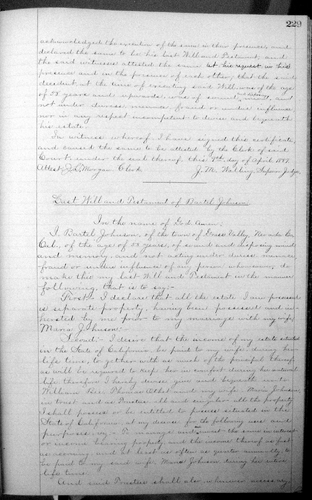 229
acknowledged the execution of the same in their presence and
declared the same to be his last Will and Testament, and
the said witnesses attested the same at his request in his
presence and in the presence of each other; that the said
decedent at the time of executing said Will was of the age
of 58 years and upwards, was of sound mind, and
not under duress menace, fraud or undue influence
nor in any respect incompetent to devise and bequeath
his estate.
In witness whereof, I have signed this certificate,
and caused the same to be attested by the Clerk of said
Court under the seal thereof, this day of April
Attest Morgan Clerk J. M. Walling Superior Judge
Last Will and Testament of Bartel Johnson
In the name of God Amen,
I, Bartel Johnson, of the town of Grass Valley Nevada Co
Cal., of the age of 58 years, of sound and disposing mind
and memory, and not acting under duress, menace,
fraud or undue influence of any person whomever, do
make this my last Will and Testament in the manner
following, that is to say:-
First: I declare that all the estate I am possessed
is separate property, having been possessed and in-
herited by me prior to my marriage with my wife,
Maria Johnson.
Second: I desire that the income of my estate situated
in the State of California, be paid to my wife during her
life time, together with as much of the principal thereof
as will be required to keep her in comfort during her natural
life therefore I hereby devise give and bequeath unto
William and my wife Maria Johnson,
in trust and as Trustees all and singular all the property
I shall possess or be entitled to possess situated in the
State of California at my demise for the following uses and
purposes,
or
necessary and at least as often as quarter annually to
be paid to my said wife, Maria Johnson during her natural
life time.
And said Trustees shall also whenever necessary